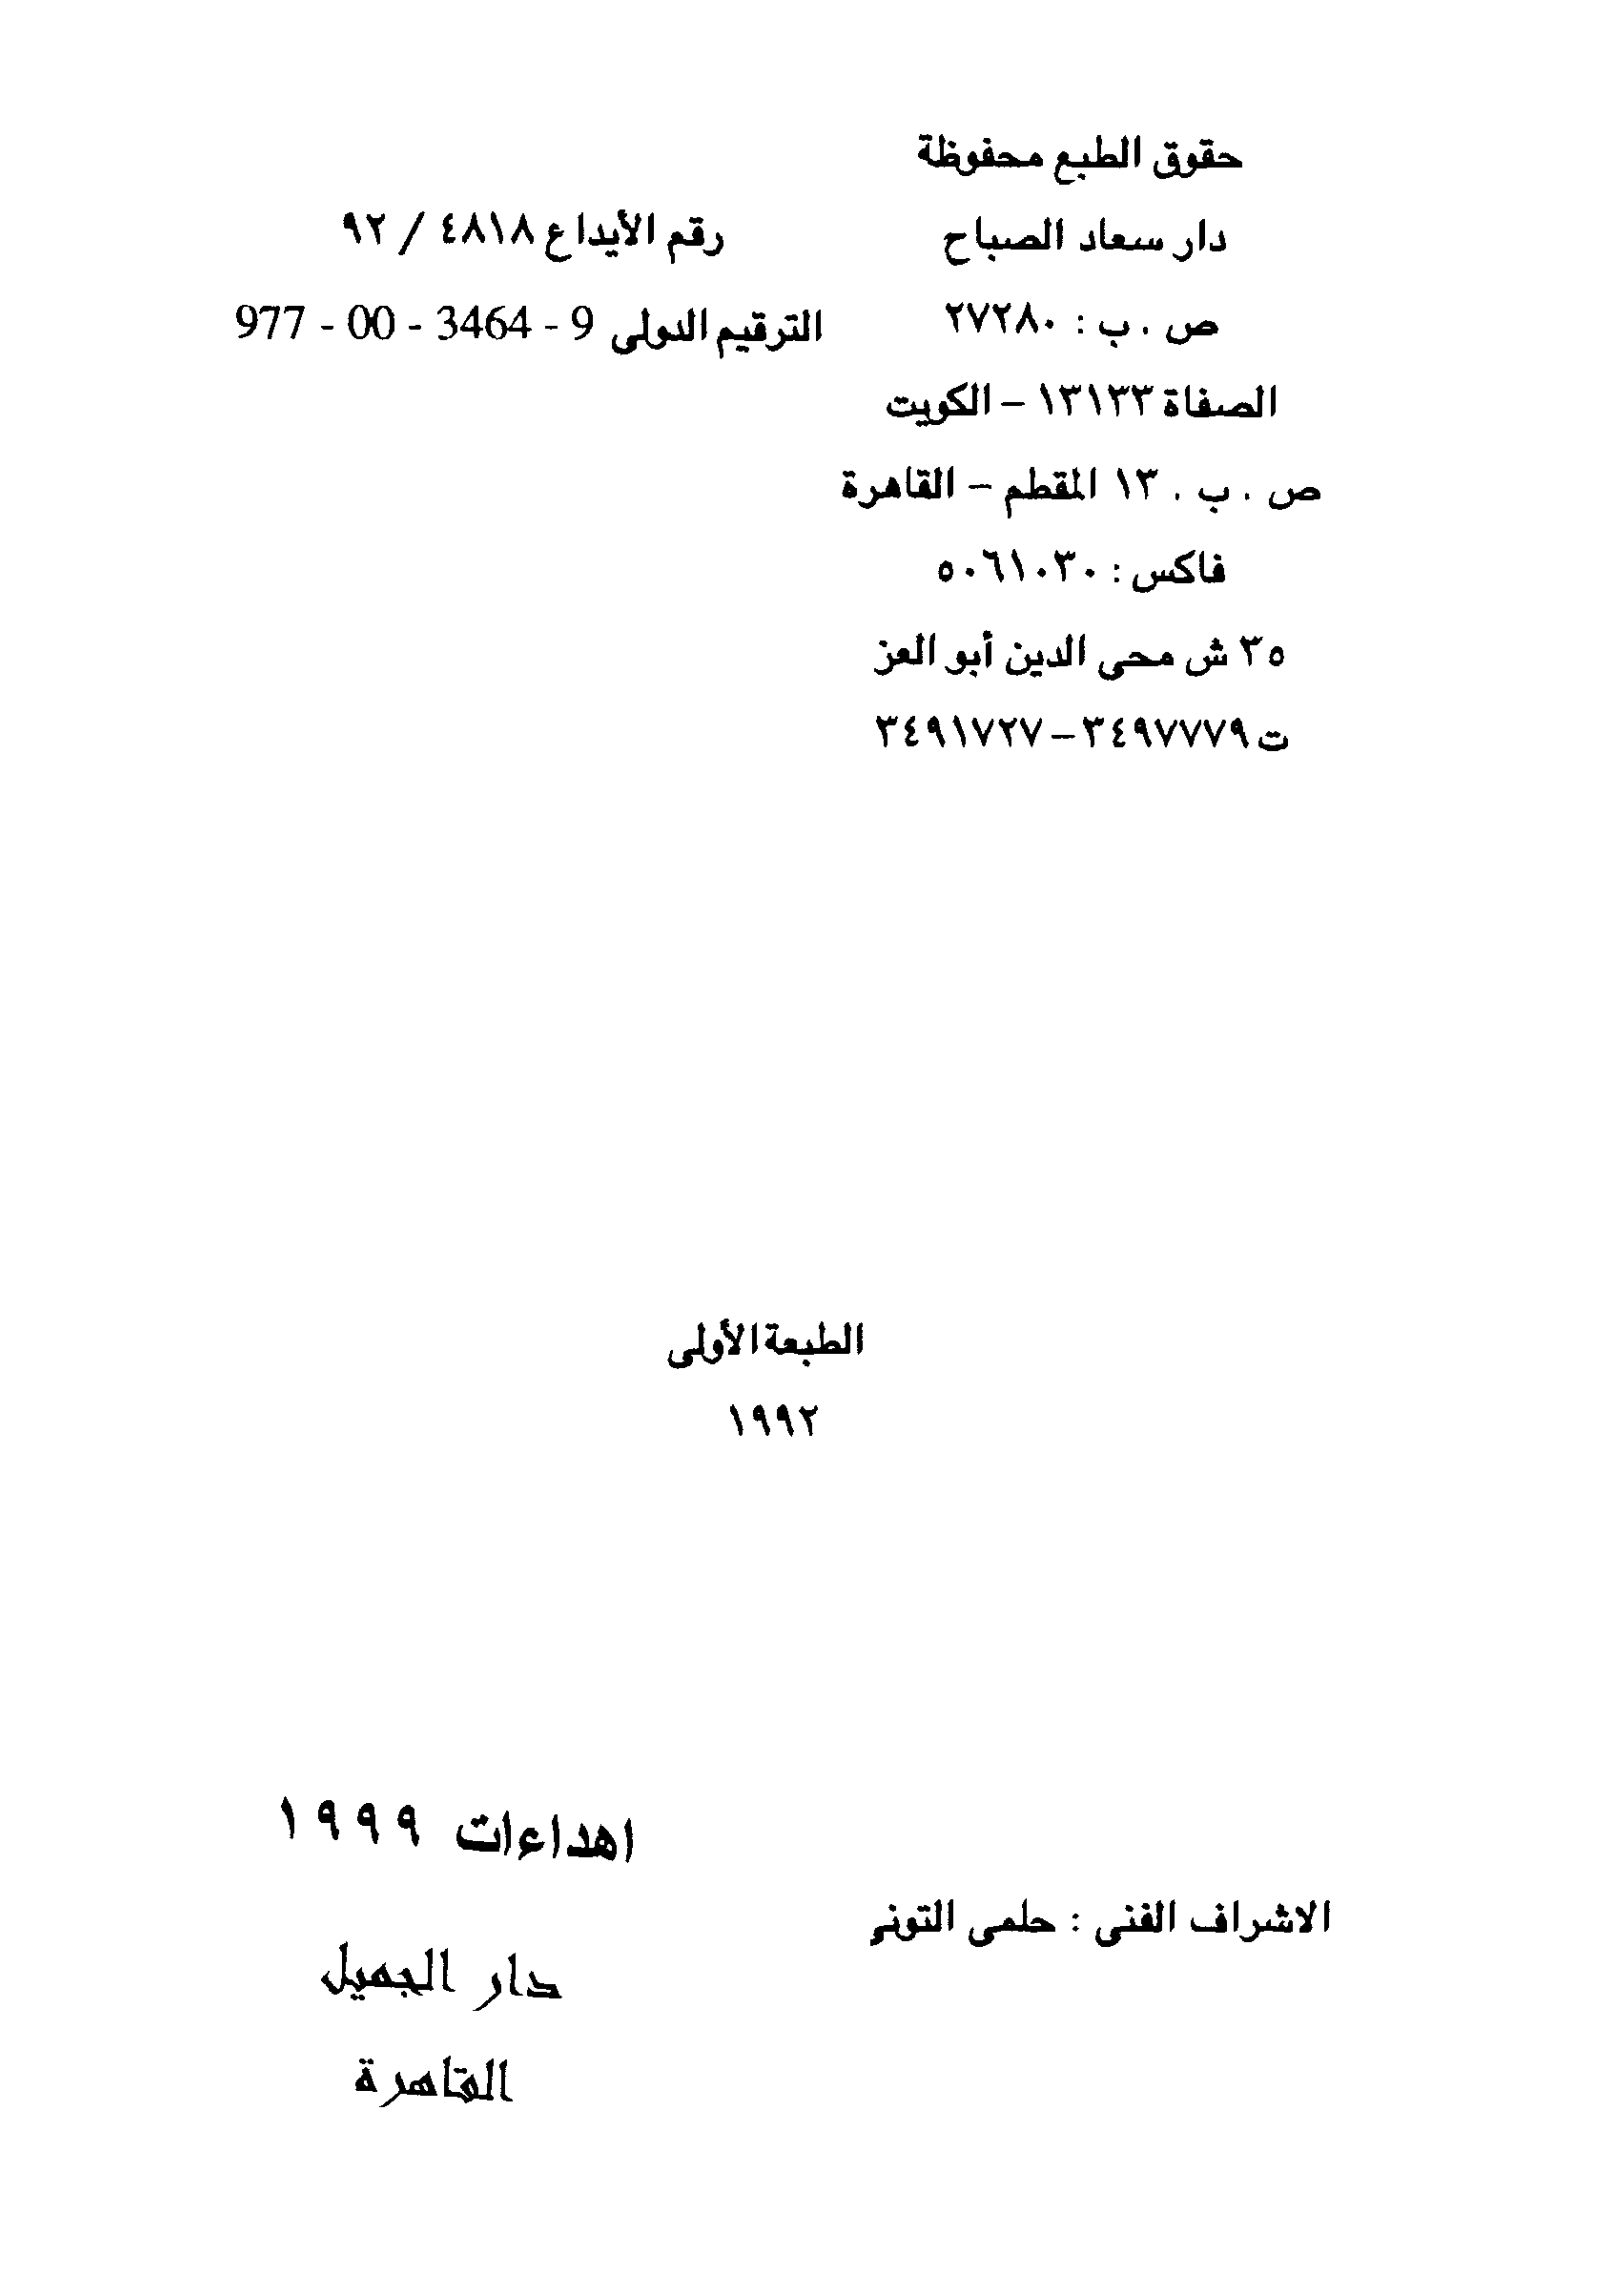 حقوق الطبع محفوظة
دار سعاد الصباح
ص . ب : ٢٧٢٨٠
الصفاة ١٣١٣٣ – الكويت
ص . ب . ١٣ المقطم – القاهرة
فاكس : ٥٠٦١٠٣٠
٣٥ ش محى الدين أبو العز
ت ٣٤٩٧٧٧٩ – ٣٤٩١٧٢٧
رقم الأيداع ٤٨١٨ / ٩٢
الترقيم الدولى 9 - 3464 - 00 - 977
الطبعة الأولى
١٩٩٢
الاشراف الفنى : حلمى التونى
اهداءات ١٩٩٩
دار الجميل
القاهرة